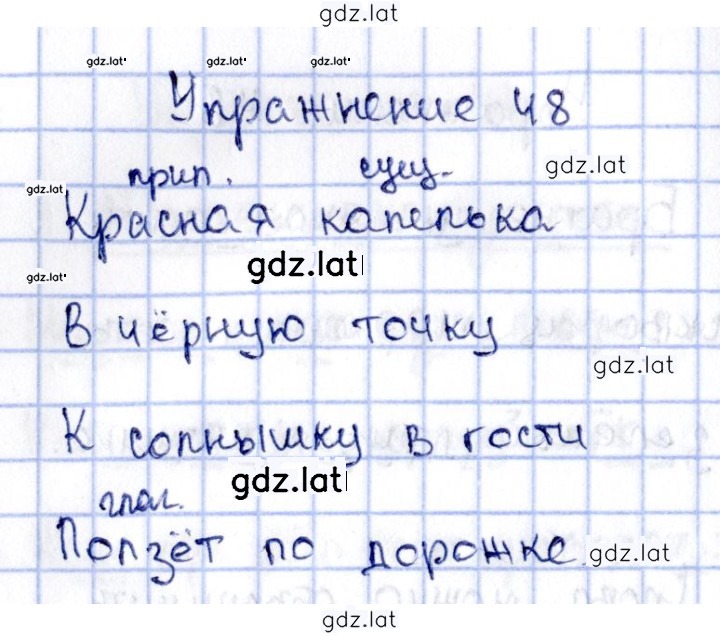 gdz.lat
gdz.lat gdz.lat gdz.lat
Упражнение 48
прил. сущ. gdz.lat
gdz.lat
Красная капелька
gdz.lat
gdz.lat
В чёрную точку
gdz.lat
К солнышку в гости
gdz.lat
глаг.
Ползёт по дорожке
gdz.lat
gdz.lat